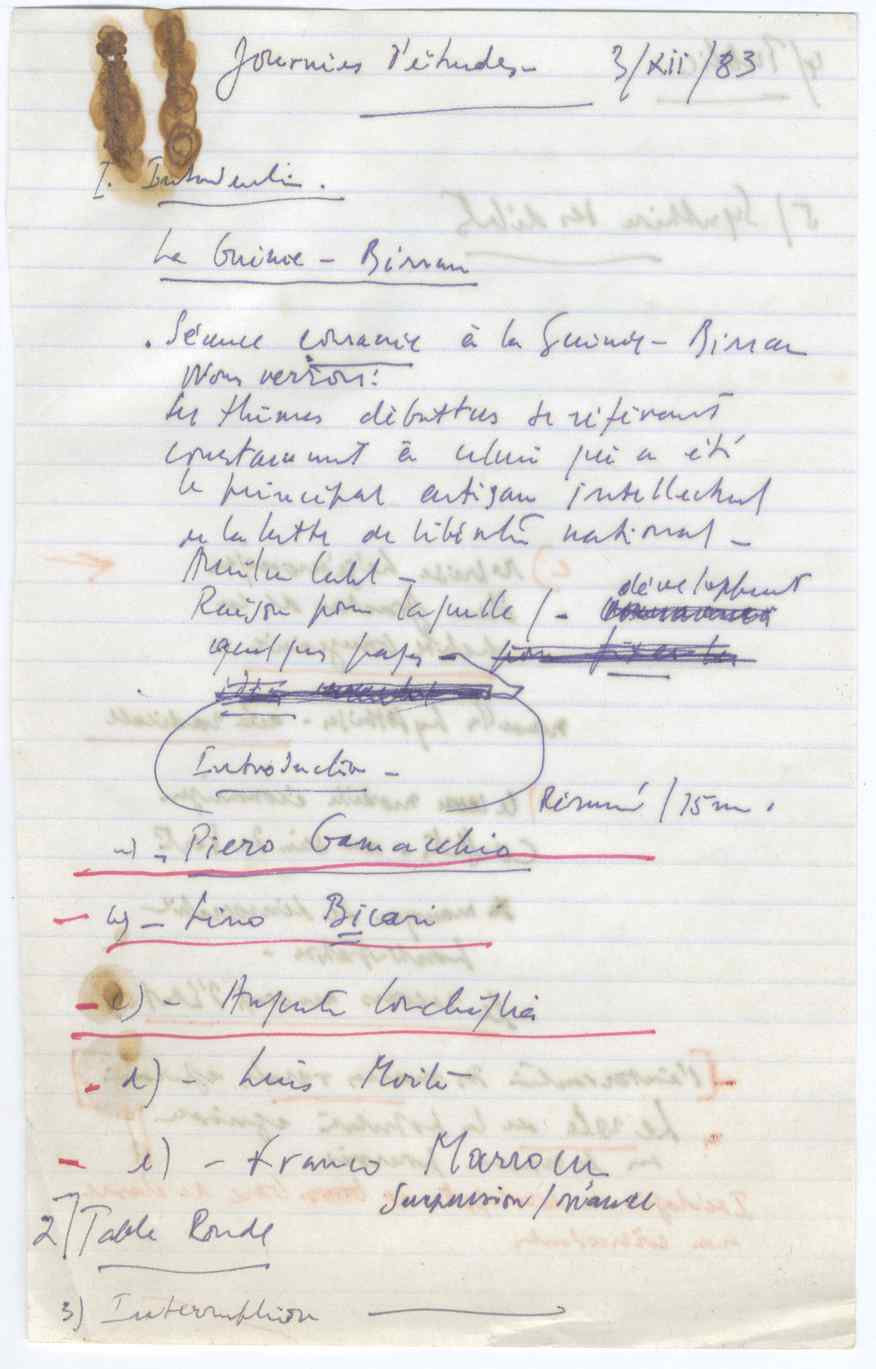 Journées d'études - 3/XII/83
I. Introduction.
La Guinée - Bissau
. Séance consacrée à la Guinée - Bissau
Nous verrons:
les thèmes débattus se référant
constamment à celui qui a été
le principal artisan intellectuel
de la lutte de libération national -
Amílcar Cabral -
Raison pour laquelle / - développent
quelques pages -
Introduction -
Résumé / 15 m.
a) - Piero Gamacchio
b) - Lino Bicari
c) - Augusta Conchiglia
d) - Luis Moita
e) - Franco Marrocu
Suspension / séance
2) Table Ronde
3) Interruption